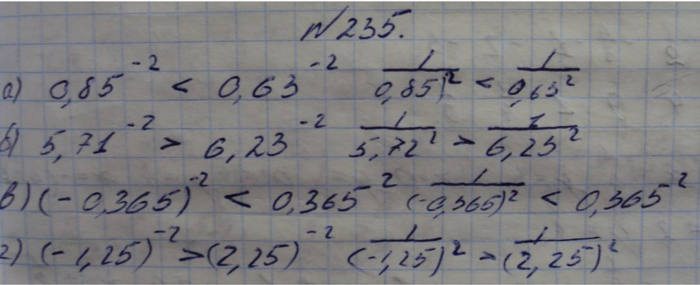 №235.
а) 0,85⁻² < 0,63⁻² 1/0,85)² < 1/0,63²
б) 5,71⁻² > 6,23⁻² 1/5,72² > 1/6,25²
в) (-0,365)⁻² < 0,365⁻² 1/(-0,365)² < 0,365⁻²
г) (-1,25)⁻² > (2,25)⁻² 1/(-1,25)² > 1/(2,25)²